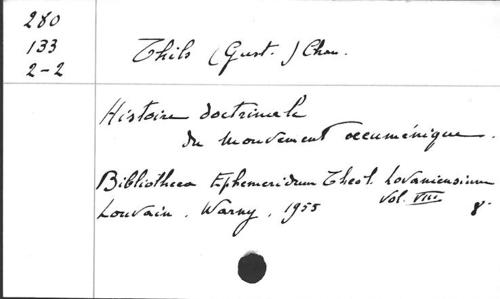 280
133
2-2
Thils (Gust.) Chan.
Histoire doctrinale
du Mouvement œcuménique.
Bibliotheca Ephemeridum Theol. Lovaniensium
Vol. VIII
Louvain, Warny, 1955 8°